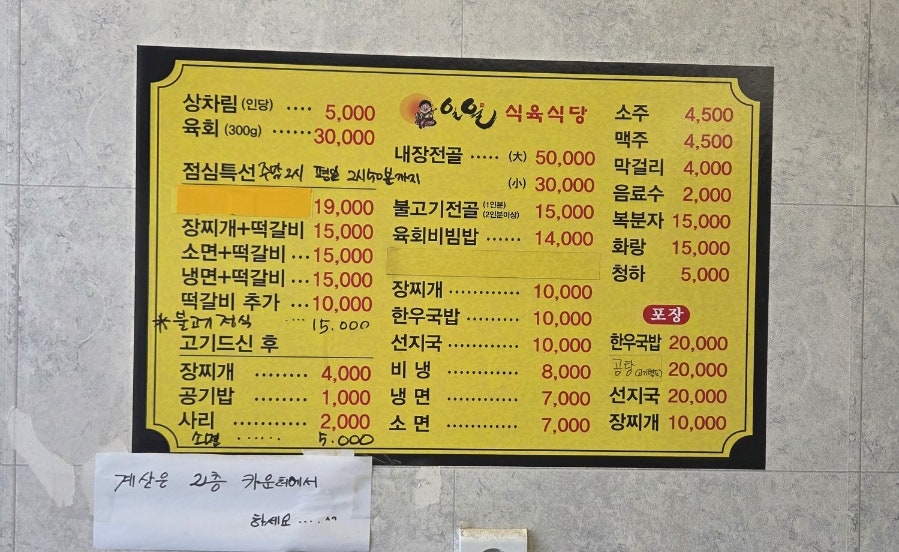 상차림 (인당) .... 5,000
육회 (300g) ...... 30,000
점심특선 주말 2시 평일 2시50분까지
19,000
장찌개+떡갈비 15,000
소면+떡갈비 ... 15,000
냉면+떡갈비 ... 15,000
떡갈비 추가 ... 10,000
*불고기 정식 .... 15.000
고기드신 후
장찌개 ........ 4,000
공기밥 ........ 1,000
사리 ........... 2,000
소면 ...... 5.000
식육식당
내장전골 ..... (大) 50,000
(小) 30,000
불고기전골 (1인분) (2인분이상) 15,000
육회비빔밥 ...... 14,000
장찌개 ............ 10,000
한우국밥 .......... 10,000
선지국 ............ 10,000
비 냉 ............ 8,000
냉 면 ............ 7,000
소 면 ............ 7,000
소주 4,500
맥주 4,500
막걸리 4,000
음료수 2,000
복분자 15,000
화랑 15,000
청하 5,000
포장
한우국밥 20,000
곰탕 20,000
선지국 20,000
장찌개 10,000
계산은 2층 카운터에서
하세요 .....^^